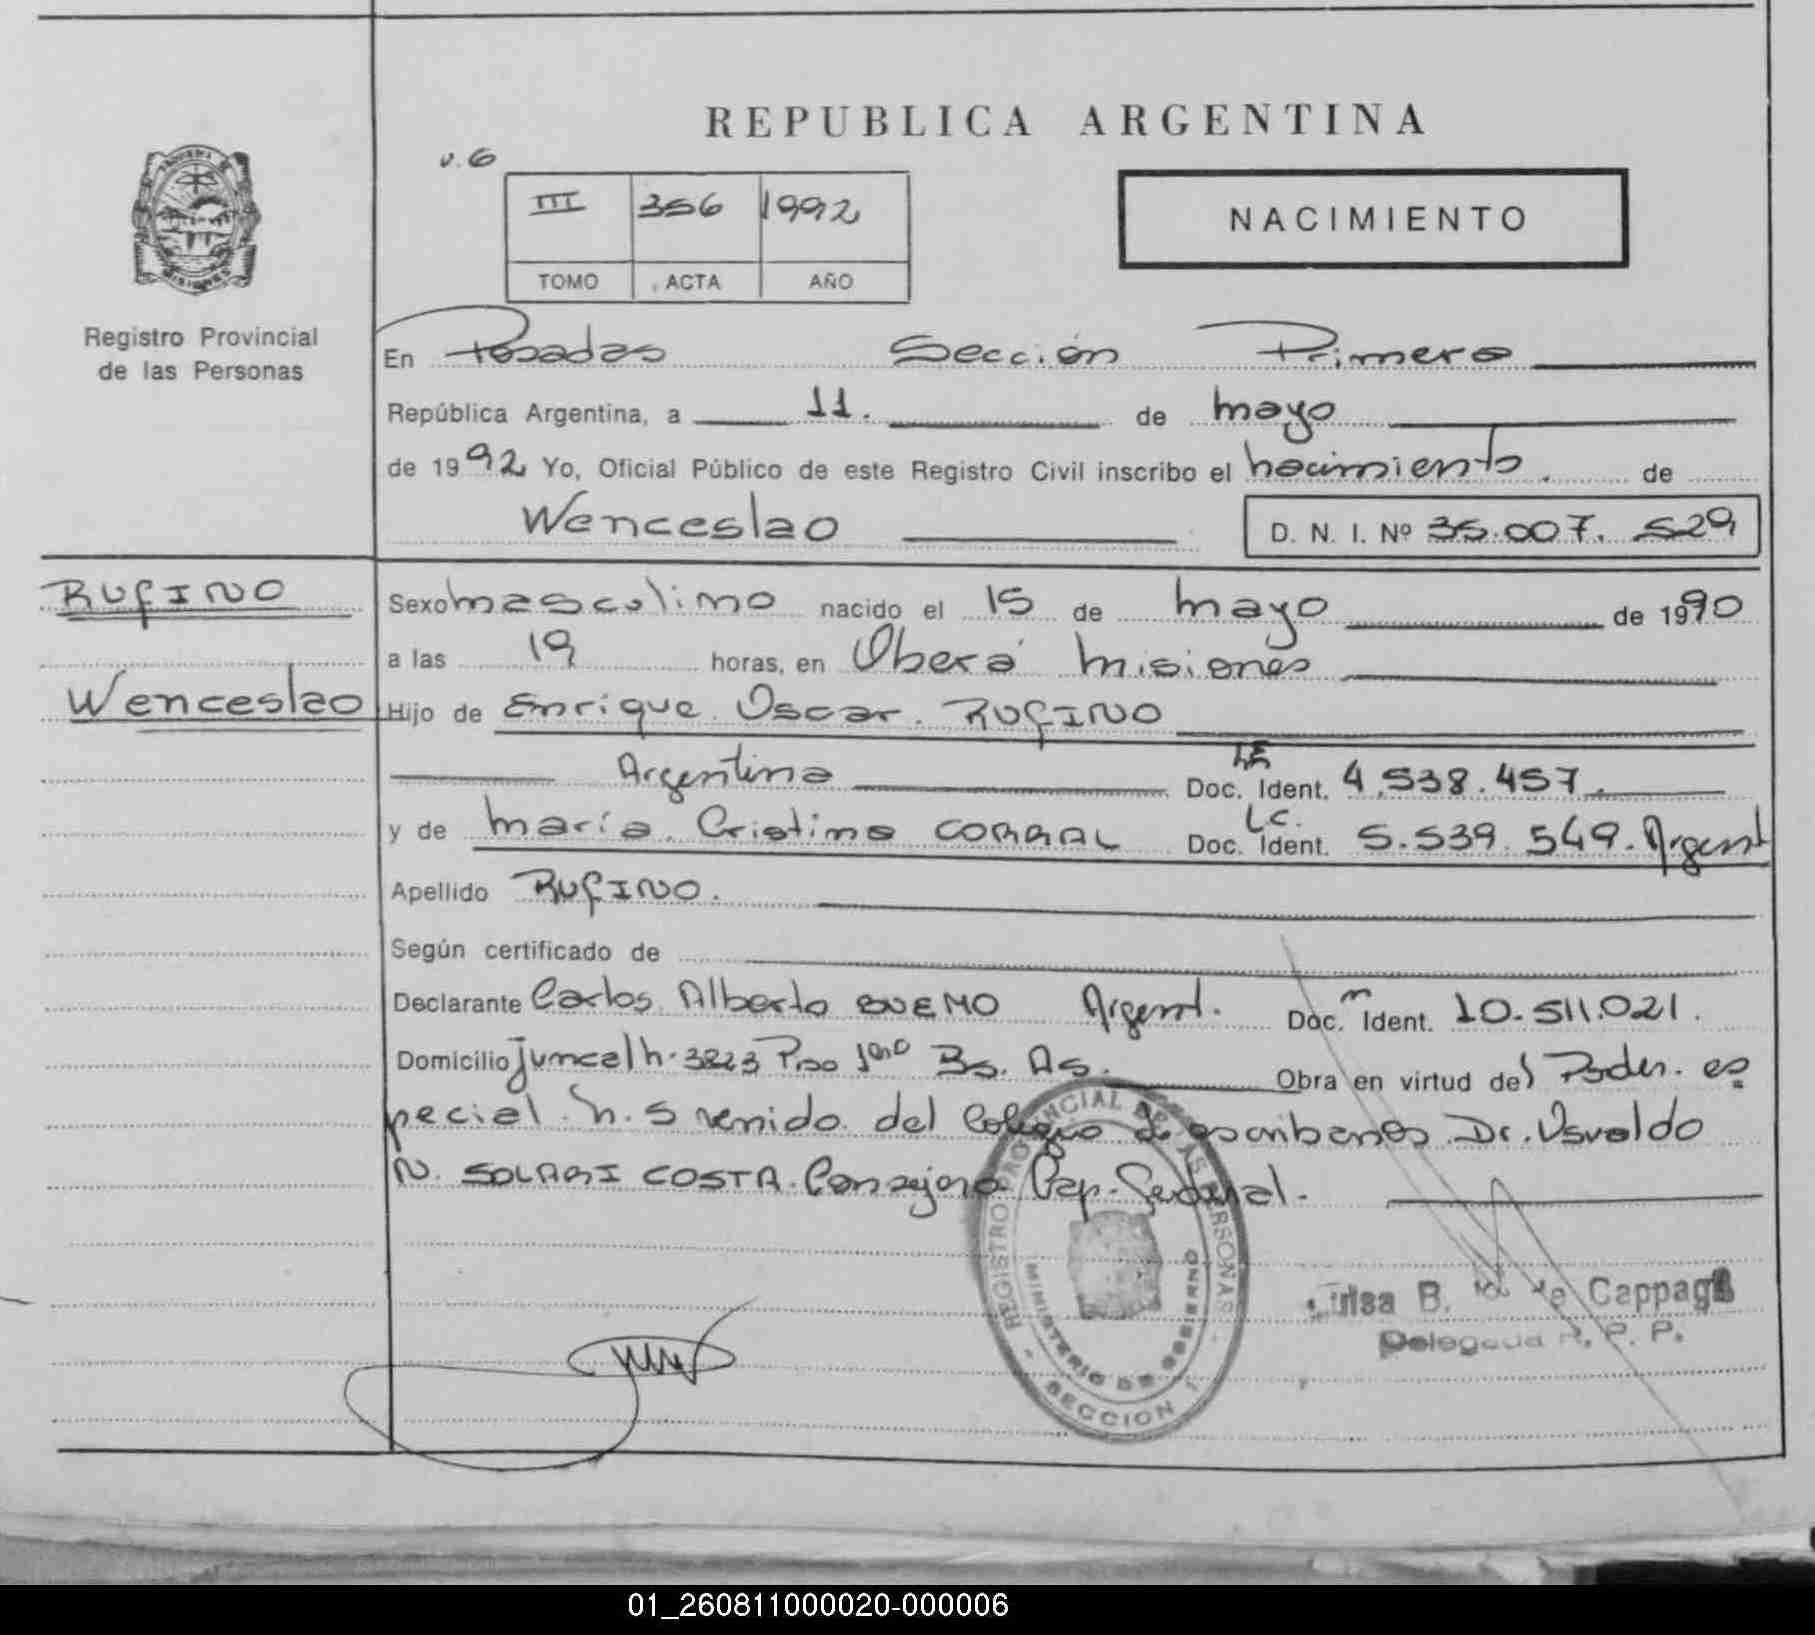 REPUBLICA ARGENTINA
v. 6
III 356 1992
TOMO ACTA AÑO
NACIMIENTO
Registro Provincial
de las Personas
En Posadas Sección Primera
República Argentina, a 11. de mayo
de 1992 Yo, Oficial Público de este Registro Civil inscribo el nacimiento. de
Wenceslao D. N. I. Nº 35.007.529
RUFINO
Wenceslao
Sexo masculino nacido el 15 de mayo de 1990
a las 19 horas, en Oberá Misiones
Hijo de Enrique Oscar RUFINO
Argentina LE Doc. Ident. 4.538.457.
y de María Cristina CORRAL L.C. Doc. Ident. 5.539.549. Argent
Apellido RUFINO.
Según certificado de
Declarante Carlos Alberto BUEMO Argent. Doc. Ident. 10.511.021.
Domicilio Juncal n. 3223 Piso 1ero Bs. As. Obra en virtud del Poder es
pecial n. 5 venido del Colegio de escribanos Dr. Osvaldo
N. SOLARI COSTA. Consejero Cap. Federal.
REGISTRO PROVINCIAL DE LAS PERSONAS
MINISTERIO DE GOBIERNO
SECCION
B. Cappag
Delegada R. P. P.
01_260811000020-000006